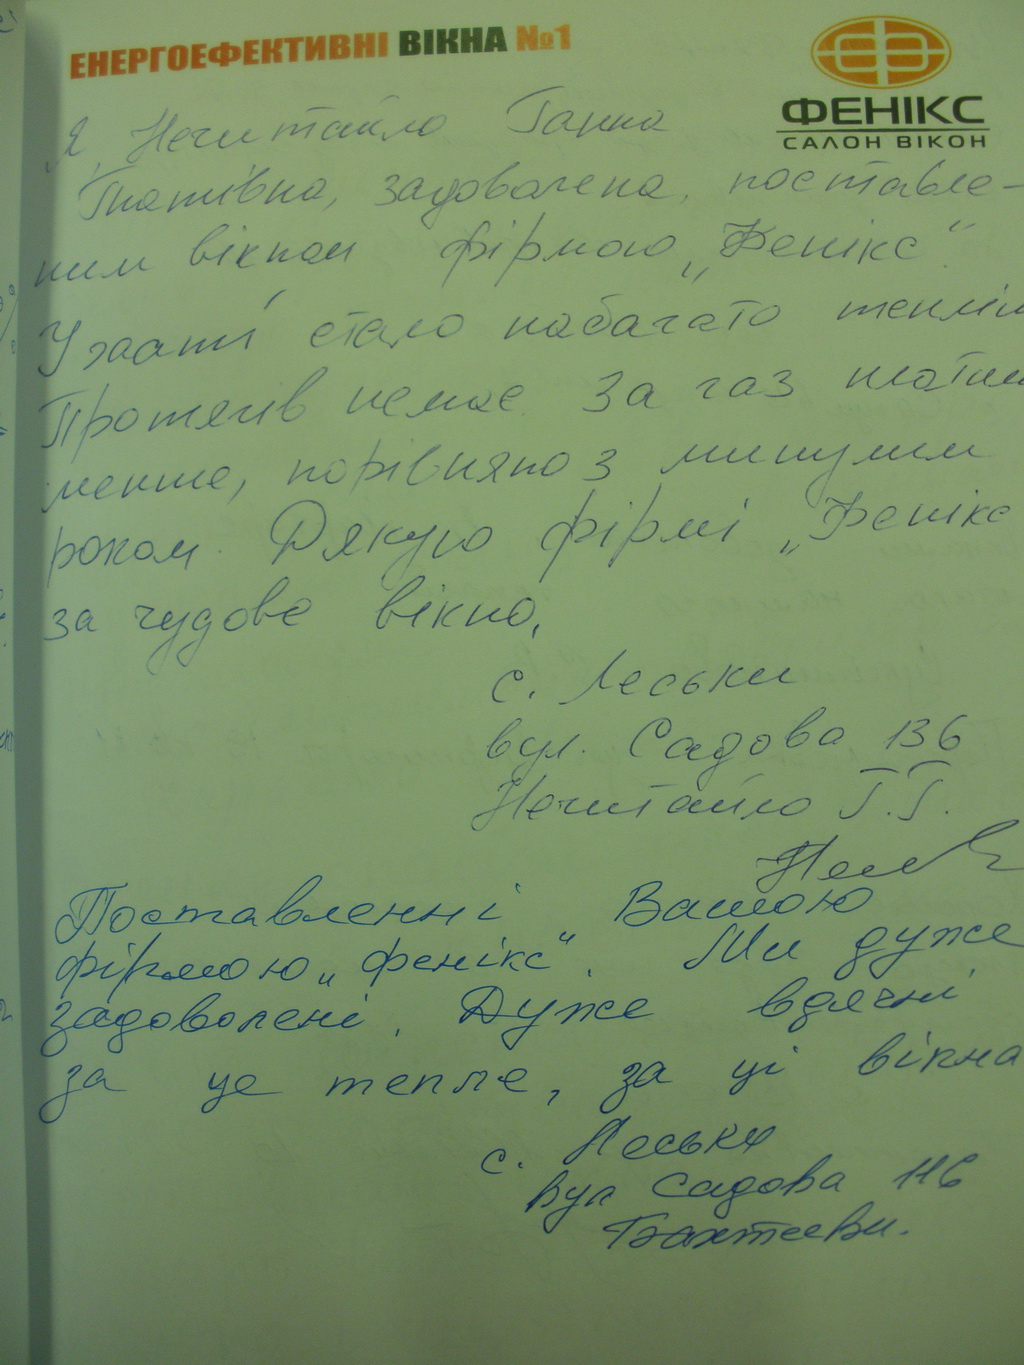 ЕНЕРГОЕФЕКТИВНІ ВІКНА №1
ФЕНІКС
САЛОН ВІКОН
Я, Нечитайло Ганна
Гнатівна, задоволена, поставле-
ним вікном фірмою „Фенікс".
У хаті стало набагато теплі
Протягів немає. За газ плати
менше, порівняно з минулим
роком. Дякую фірмі „Фенікс
за чудове вікно.
с. Леськи
вул. Садова 136
Нечитайло Г.Г.
Поставленні Вашою
фірмою „Фенікс". Ми дуже
задоволені. Дуже вдячні
за це тепле, за ці вікна
с. Леськи
вул Садова 116